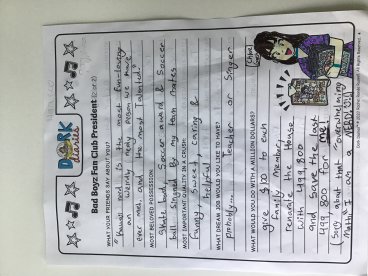 DORK
diaries
Bad Boyz Fan Club President (2 of 2)
WHAT YOUR FRIENDS SAY ABOUT YOU?
is the most fun-loving
an wierdly nerdy person we have
ever met, and the most talented."
MOST BELOVED POSSESSION:
Skate bord, Soccer award & Soccer
ball singed by my team mates
MOST IMPORTANT QUALITY IN A CRUSH:
Funny, sweet, caring &
helpful.
WHAT DREAM JOB WOULD YOU LIKE TO HAVE?
probably... Teacher or Singer
WHAT WOULD YOU DO WITH A MILLION DOLLARS?
give $100 to each
Family Member,
renarate the House
with 499,800
and save the last
499,800 for me!
Sorry about that "overwhelming
Math" am a NERD, LOL!
Chloe